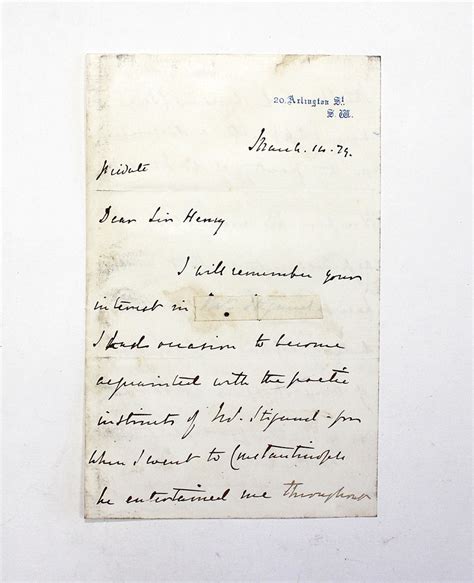 20. Arlington St.
S. W.
March. 14. 79.
Private
Dear Sir Henry
I will remember your
interest in
I had occasion to become
acquainted with the poetic
instincts of Stigand - for
when I went to Constantinople
he entertained me throughout